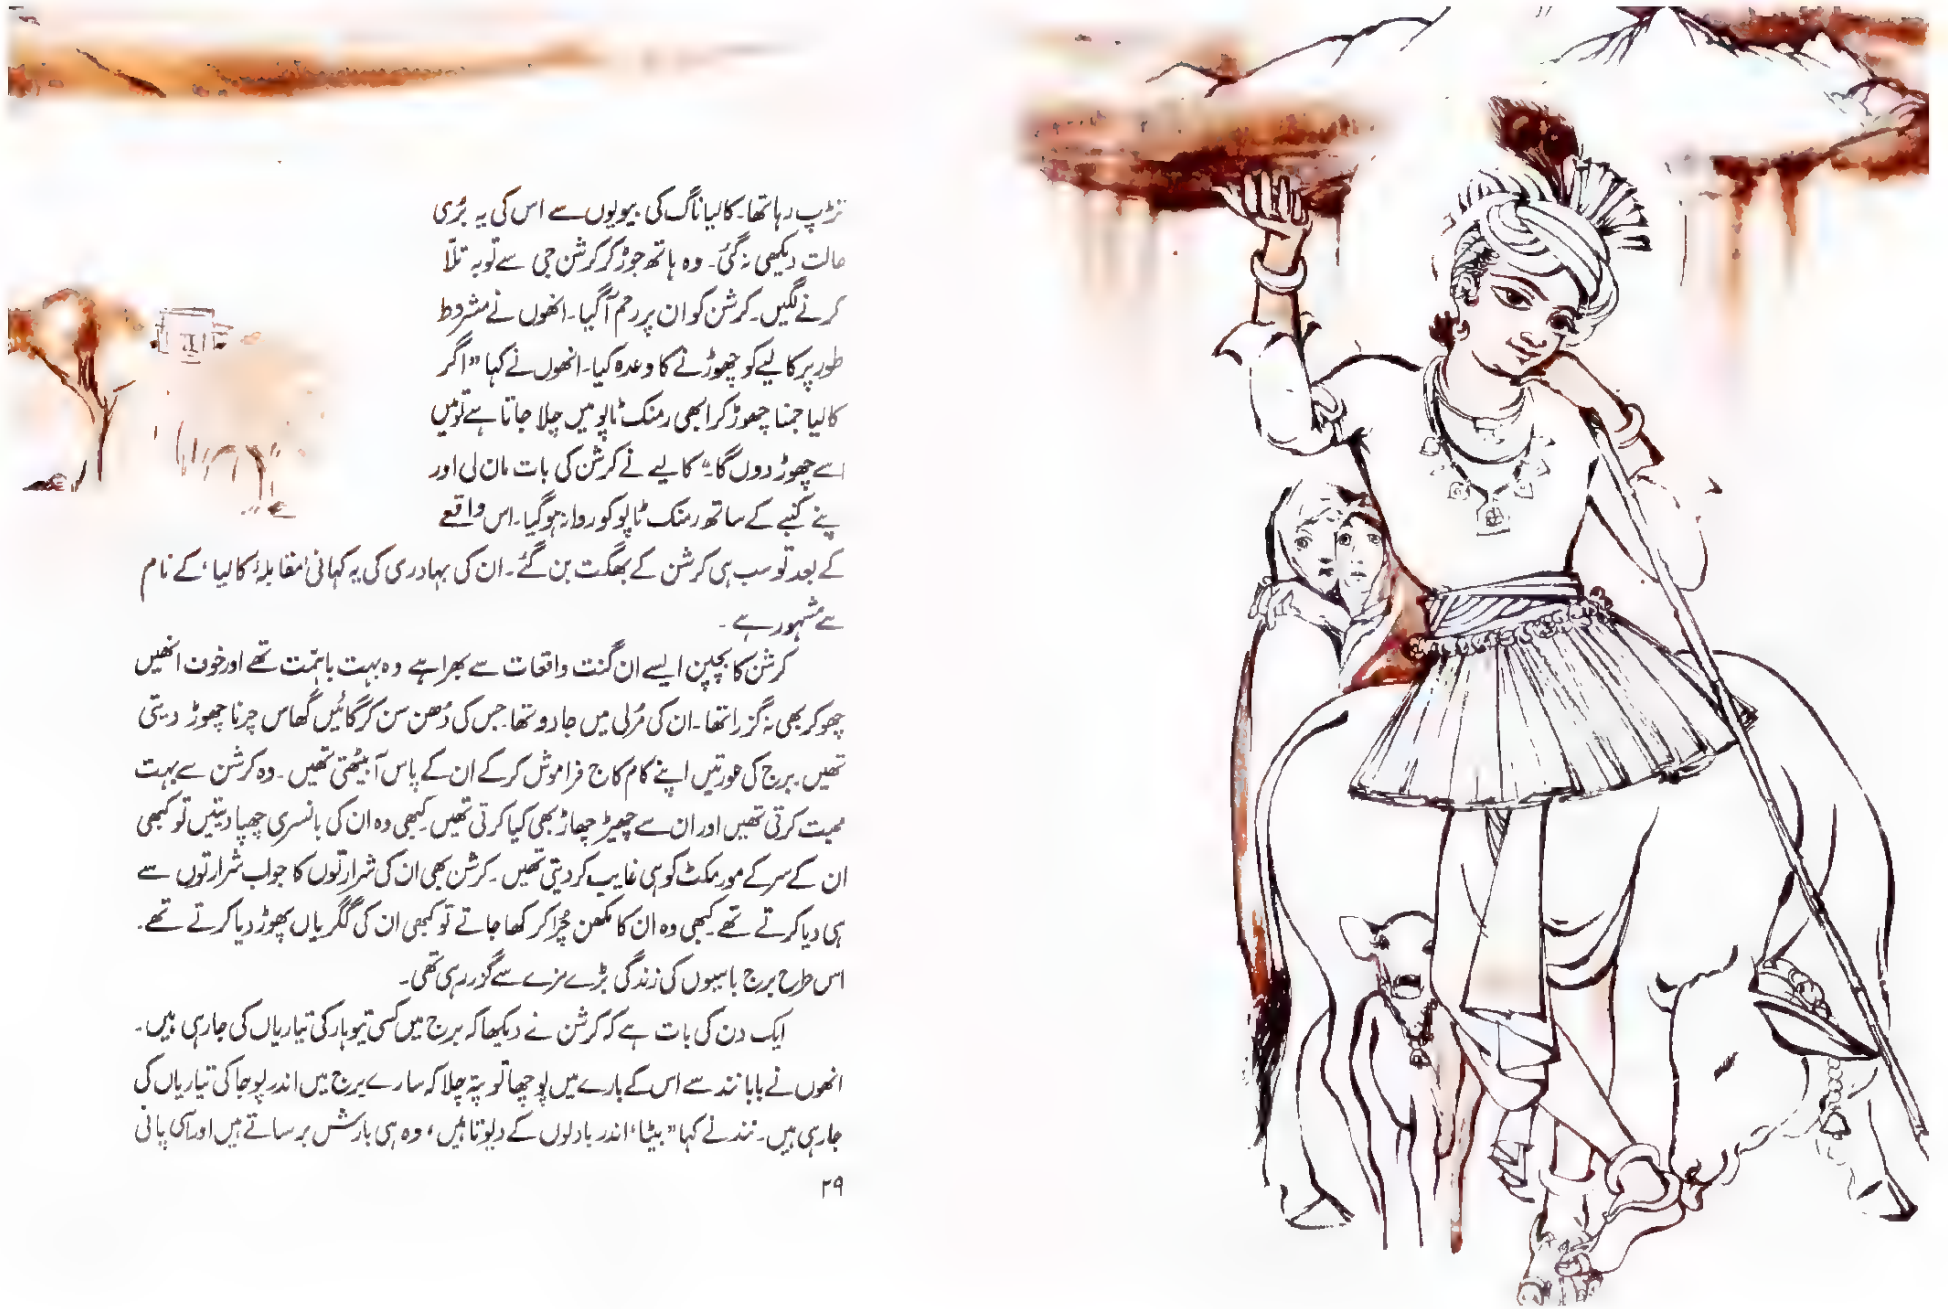 تڑپ رہا تھا۔ کالیا ناگ کی بیویوں سے اس کی یہ بُری
حالت دیکھی نہ گئی۔ وہ ہاتھ جوڑ کر کرشن جی سے توبہ تلّا
کرنے لگیں۔ کرشن کو ان پر رحم آگیا۔ انھوں نے مشروط
طور پر کالیے کو چھوڑنے کا وعدہ کیا۔ انھوں نے کہا ”اگر
کالیا جمنا چھوڑ کر ابھی رمنک ٹاپو میں چلا جاتا ہے تو میں
اسے چھوڑ دوں گا۔“ کالیے نے کرشن کی بات مان لی اور
اپنے کنبے کے ساتھ رمنک ٹاپو کو روانہ ہوگیا۔ اس واقعے
کے بعد تو سب ہی کرشن کے بھگت بن گئے۔ ان کی بہادری کی یہ کہانی ’مقابلۂ کالیا‘ کے نام
سے مشہور ہے۔
کرشن کا بچپن ایسے ان گنت واقعات سے بھرا ہے وہ بہت باہمّت تھے اور خوف انھیں
چھو کر بھی نہ گزرا تھا۔ ان کی مُرلی میں جادو تھا جس کی دُھن سن کر گائیں گھاس چرنا چھوڑ دیتی
تھیں۔ برج کی عورتیں اپنے کام کاج فراموش کرکے ان کے پاس آ بیٹھتی تھیں۔ وہ کرشن سے بہت
محبت کرتی تھیں اور ان سے چھیڑ چھاڑ بھی کیا کرتی تھیں۔ کبھی وہ ان کی بانسری چھپا دیتیں تو کبھی
ان کے سر کے مور مکٹ کو ہی غایب کردیتی تھیں۔ کرشن بھی ان کی شرارتوں کا جواب شرارتوں سے
ہی دیا کرتے تھے۔ کبھی وہ ان کا مکھن چُرا کر کھا جاتے تو کبھی ان کی گگریاں پھوڑ دیا کرتے تھے۔
اس طرح برج باسیوں کی زندگی بڑے مزے سے گزر رہی تھی۔
ایک دن کی بات ہے کہ کرشن نے دیکھا کہ برج میں کسی تیوہار کی تیاریاں کی جارہی ہیں۔
انھوں نے بابا نند سے اس کے بارے میں پوچھا تو پتہ چلا کہ سارے برج میں اندر پوجا کی تیاریاں کی
جارہی ہیں۔ نند نے کہا ”بیٹا، اندر بادلوں کے دیوتا ہیں، وہ ہی بارش برساتے ہیں اور اسی پانی
۲۹